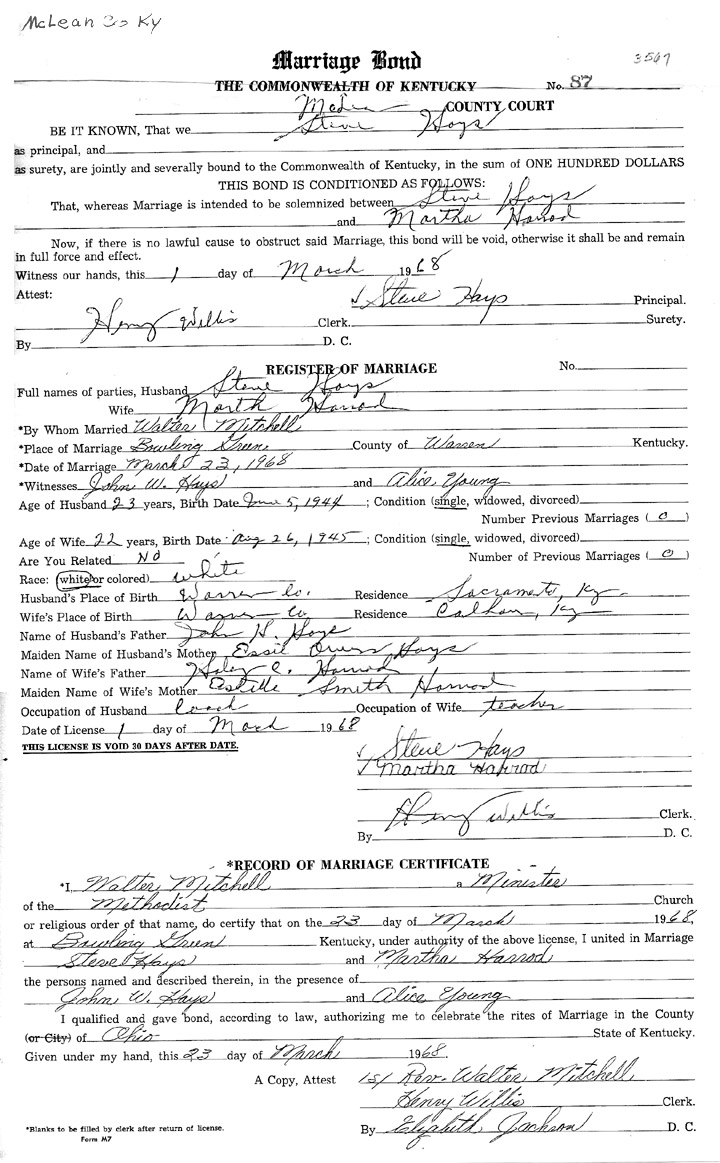 McLean Co Ky
Marriage Bond
3567
THE COMMONWEALTH OF KENTUCKY No. 87
McLean COUNTY COURT
BE IT KNOWN, That we Steve Hays
as principal, and
as surety, are jointly and severally bound to the Commonwealth of Kentucky, in the sum of ONE HUNDRED DOLLARS
THIS BOND IS CONDITIONED AS FOLLOWS:
That, whereas Marriage is intended to be solemnized between Steve Hays
and Martha Harrod
Now, if there is no lawful cause to obstruct said Marriage, this bond will be void, otherwise it shall be and remain
in full force and effect.
Witness our hands, this 1 day of March 1968
Attest: √ Steve Hays Principal.
Henry Willis Clerk. Surety.
By D. C.
REGISTER OF MARRIAGE No.
Full names of parties, Husband Steve Hays
Wife Marth Harrod
*By Whom Married Walter Mitchell
*Place of Marriage Bowling Green County of Warren Kentucky.
*Date of Marriage March 23, 1968
*Witnesses John W. Hays and Alice Young
Age of Husband 23 years, Birth Date June 5, 1944; Condition (single, widowed, divorced)
Number Previous Marriages (0)
Age of Wife 22 years, Birth Date Aug 26, 1945; Condition (single, widowed, divorced)
Are You Related No Number of Previous Marriages (0)
Race: (white or colored) White
Husband's Place of Birth Warren Co. Residence Sacramento, Ky.
Wife's Place of Birth Warren Co Residence Calhoun, Ky
Name of Husband's Father John H. Hays
Maiden Name of Husband's Mother Essie Owens Hays
Name of Wife's Father C. Harrod
Maiden Name of Wife's Mother Smith Harrod
Occupation of Husband Coach Occupation of Wife teacher
Date of License 1 day of March 1968
THIS LICENSE IS VOID 30 DAYS AFTER DATE.
√ Steve Hays
√ Martha Harrod
Henry Willis Clerk.
By D. C.
*RECORD OF MARRIAGE CERTIFICATE
*I, Walter Mitchell a Minister
of the Methodist Church
or religious order of that name, do certify that on the 23 day of March 1968,
at Bowling Green Kentucky, under authority of the above license, I united in Marriage
Steve Hays and Martha Harrod
the persons named and described therein, in the presence of
John W. Hays and Alice Young
I qualified and gave bond, according to law, authorizing me to celebrate the rites of Marriage in the County
(or City) of Ohio State of Kentucky.
Given under my hand, this 23 day of March 1968.
A Copy, Attest /s/ Rev. Walter Mitchell
Henry Willis Clerk.
By Elizabeth Jackson D. C.
*Blanks to be filled by clerk after return of license.
Form M7